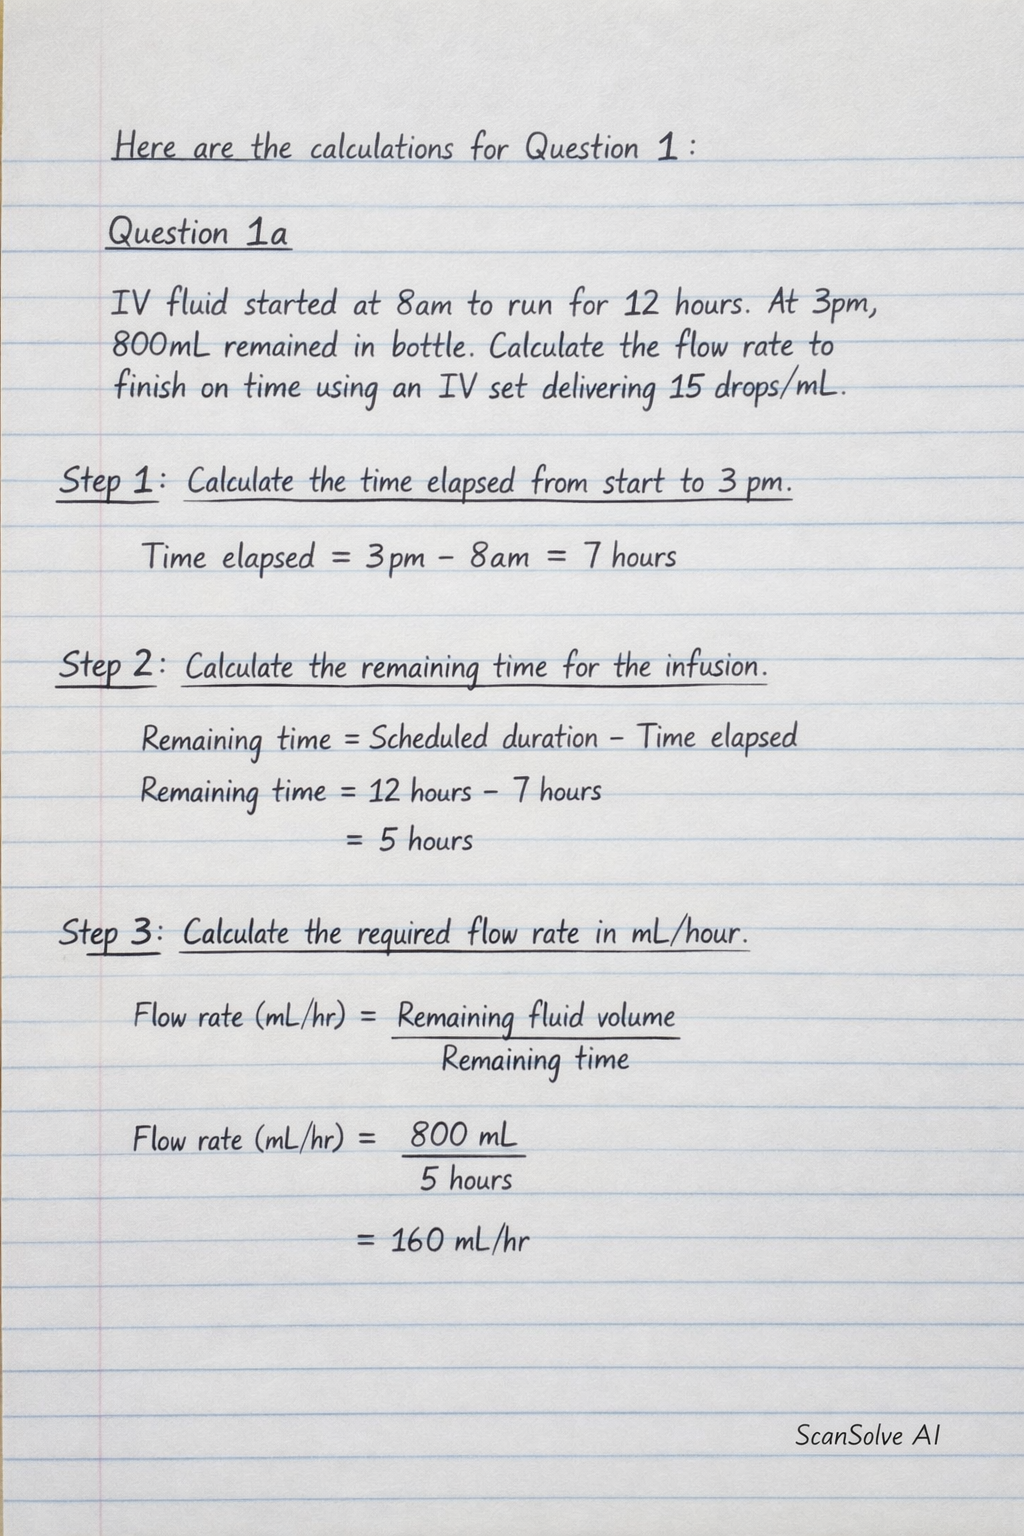 Here are the calculations for Question 1:
Question 1a
IV fluid started at 8am to run for 12 hours. At 3pm,
800mL remained in bottle. Calculate the flow rate to
finish on time using an IV set delivering 15 drops/mL.
Step 1: Calculate the time elapsed from start to 3 pm.
Time elapsed = 3pm - 8am = 7 hours
Step 2: Calculate the remaining time for the infusion.
Remaining time = Scheduled duration - Time elapsed
Remaining time = 12 hours - 7 hours
= 5 hours
Step 3: Calculate the required flow rate in mL/hour.
Flow rate (mL/hr) = Remaining fluid volume
Remaining time
Flow rate (mL/hr) = 800 mL
5 hours
= 160 mL/hr
ScanSolve AI